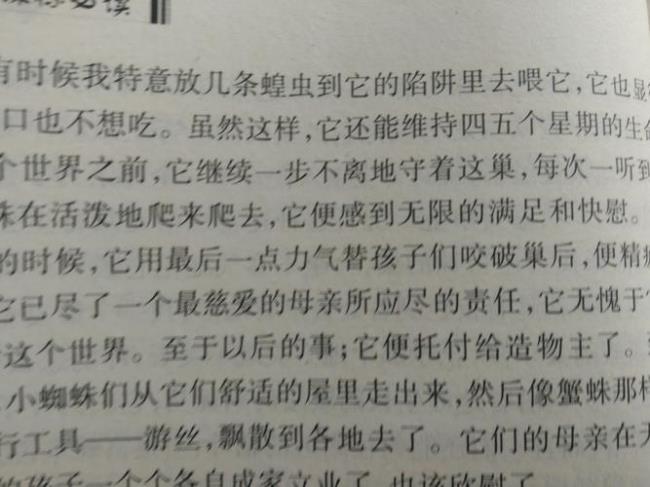 必读
有时候我特意放几条蝗虫到它的陷阱里去喂它,它也显
口也不想吃。虽然这样,它还能维持四五个星期的生命
个世界之前,它继续一步不离地守着这巢,每次一听到
蛛在活泼地爬来爬去,它便感到无限的满足和快慰。
的时候,它用最后一点力气替孩子们咬破巢后,便精疲
它已尽了一个最慈爱的母亲所应尽的责任,它无愧于
这个世界。至于以后的事;它便托付给造物主了。
小蜘蛛们从它们舒适的屋里走出来,然后像蟹蛛那样
行工具——游丝,飘散到各地去了。它们的母亲在天
的孩子一个个各自成家立业了,也该欣慰了